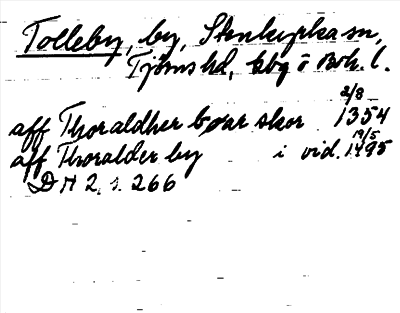 Tolleby, by, Stenkyrka sn,
Tjörns hd, Gbg o Boh. l.
2/8
aff Thoraldher bøar skor 1354
19/5
aff Thoralder by i vid. 1495
DN 2, s. 266